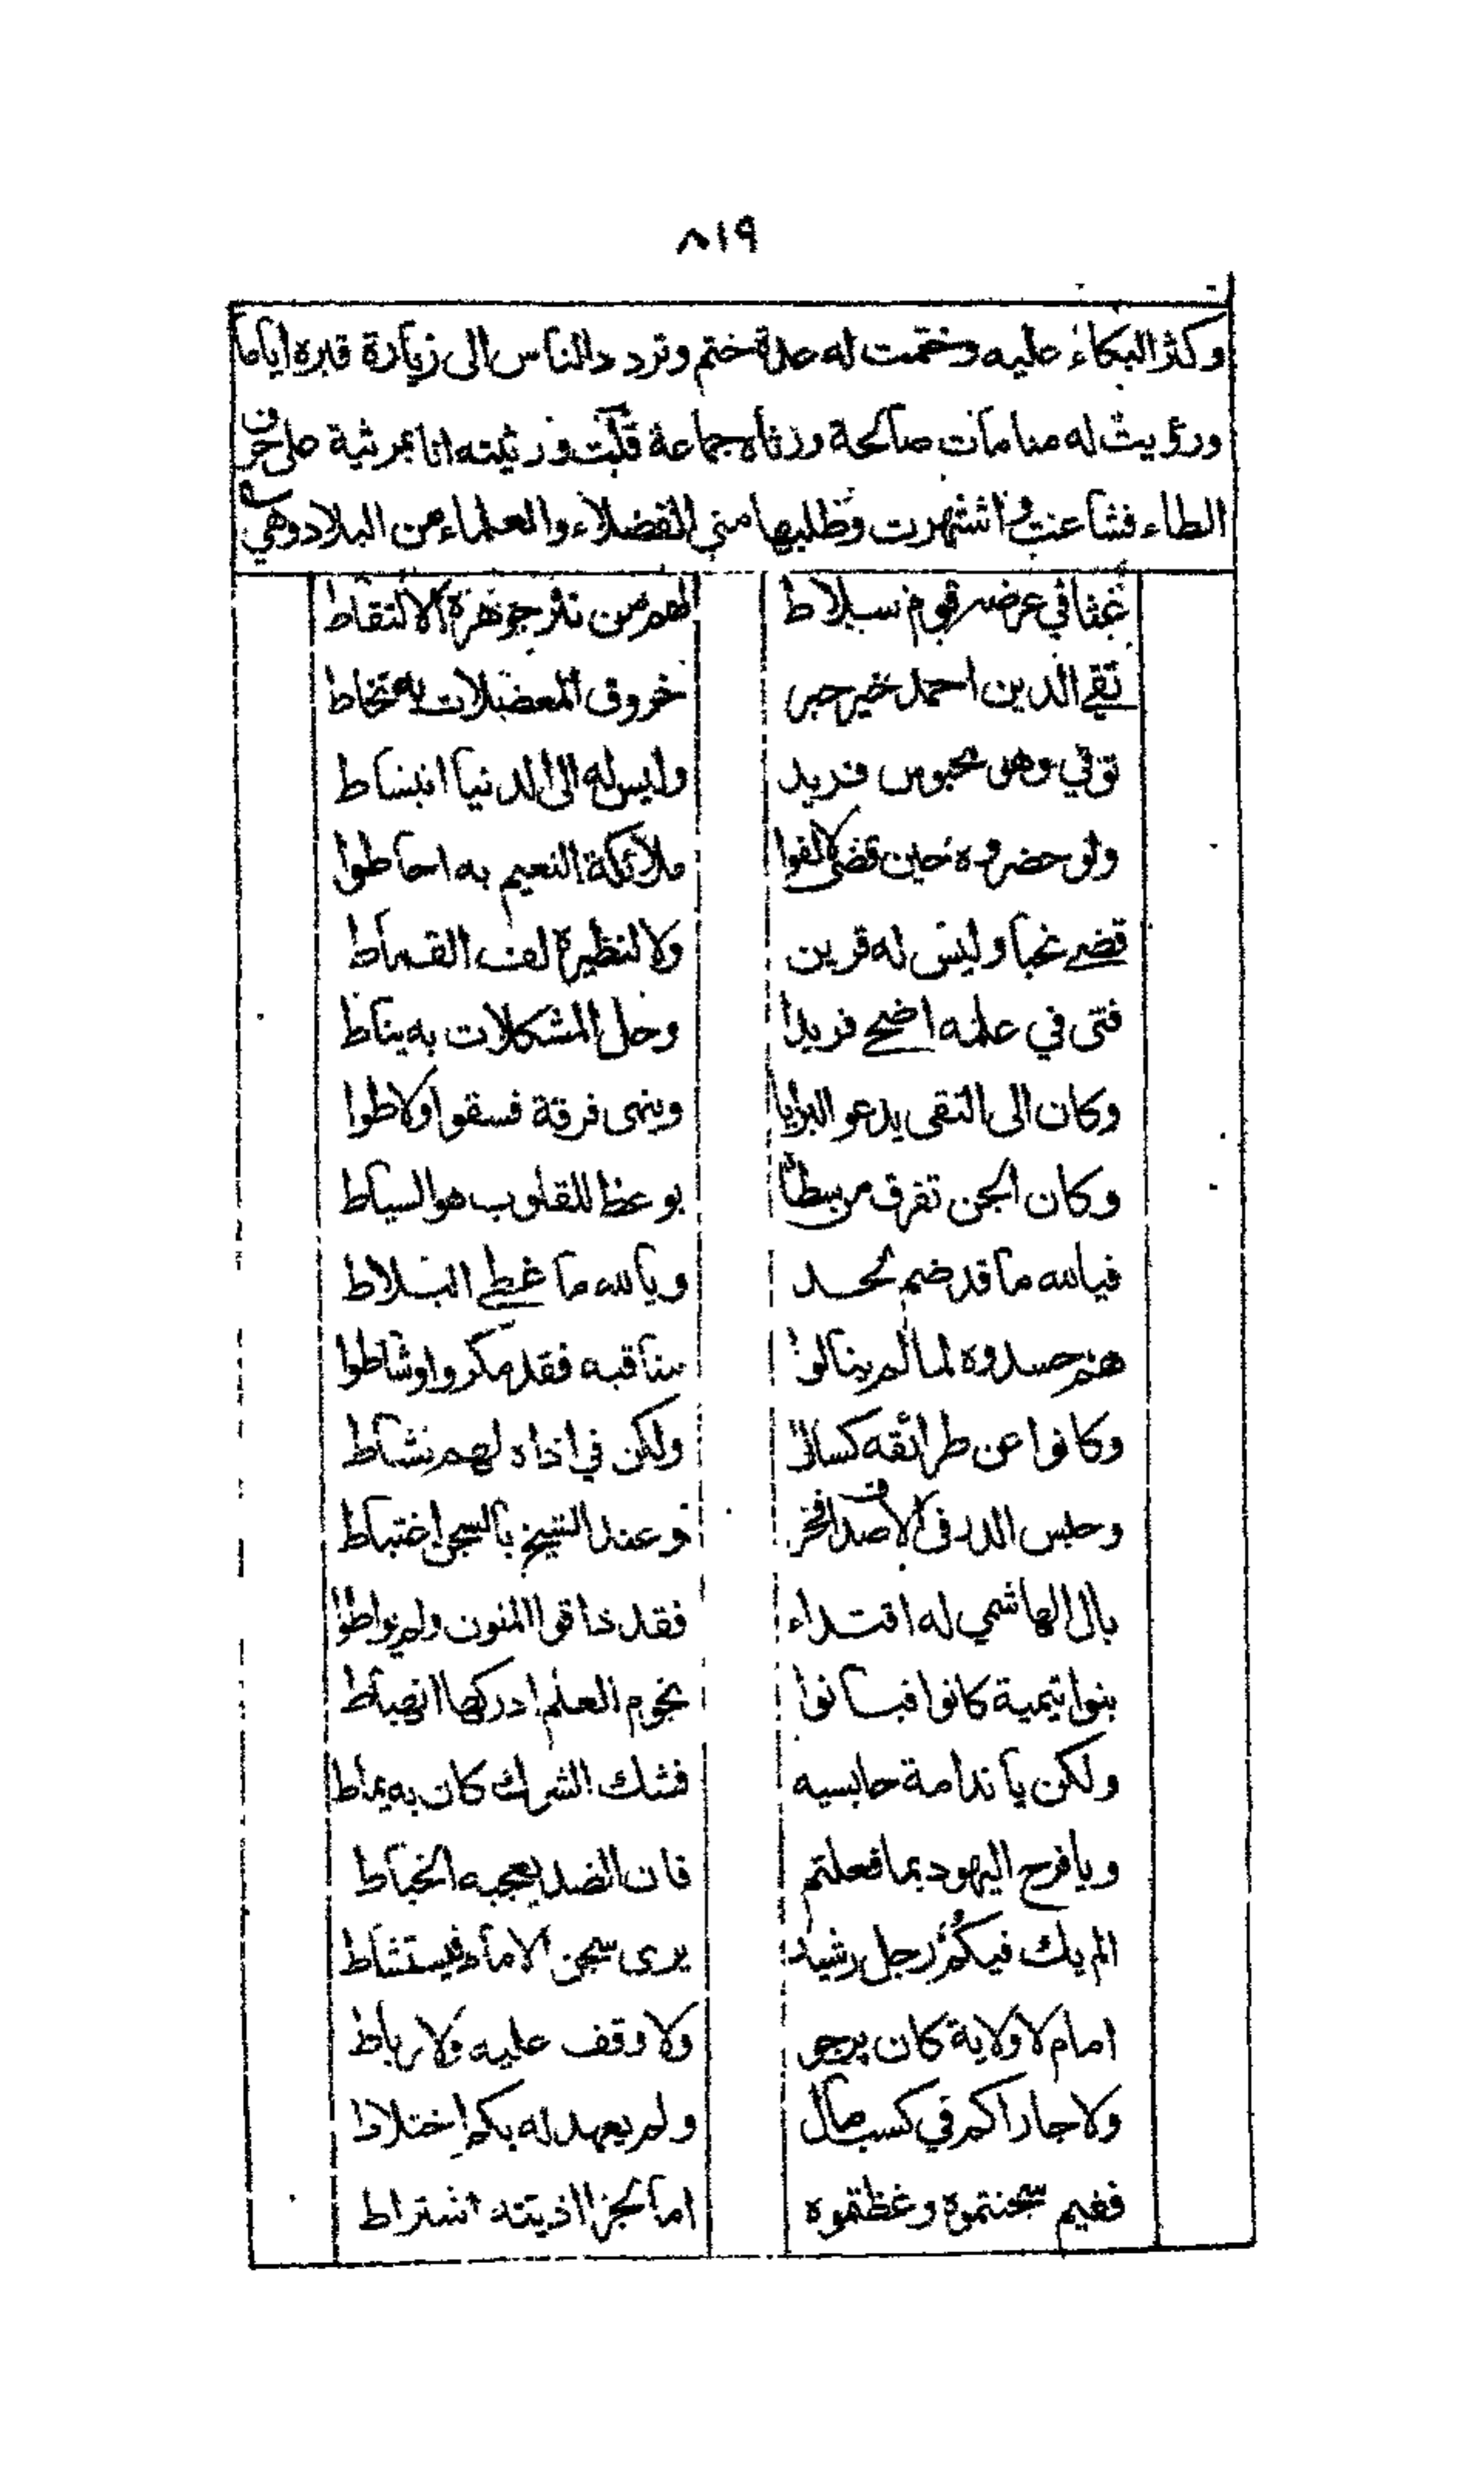 ٨١٩
وكثر البكاء عليه وختمت له عدة ختم وتردد الناس الى زيارة قبره اياما
ورؤيت له منامات صالحة ورثاه جماعة قلت ورثيته انا بمرثية على حرف
الطاء فشاعت واشتهرت وطلبها مني الفضلاء والعلماء من البلاد وهي
عثا في عرضه قوم سلاط لهم من نثر جوهره الالتقاط
تقي الدين احمد خير حبر خروق المعضلات به تخاط
توفي وهو محبوس فريد وليس له الى الدنيا انبساط
ولو حضروه حين قضى لالفوا ملائكة النعيم به احاطوا
قضى نحبا وليس له قرين ولا لنظيره لف القماط
فتى في علمه اضحى فريدا وحل المشكلات به يناط
وكان الى التقى يدعو البرايا وينهى فرقة فسقوا ولاطوا
وكان الجن تفرق من سطا بوعظ للقلوب هو السياط
فيالله ما قد ضم لحد ويالله ما غطى البلاط
هم حسدوه لما لم ينالوا مناقبه فقد مكروا وشاطوا
وكانوا عن طرائقه كسالى ولكن في اذاه لهم نشاط
وحبس الدر في الاصداف فخر وعند الشيخ بالسجن اغتباط
بال الهاشمي له اقتداء فقد ذاقوا المنون ولم يواطوا
بنوا تيمية كانوا فبانوا نجوم العلم ادركها انهباط
ولكن يا ندامة حابسيه فشك الشرك كان به يماط
ويا فرح اليهود بما فعلتم فان الضد يعجبه الخباط
الم يك فيكم رجل رشيد يرى سجن الامام فيستشاط
امام لا ولاية كان يرجو ولا وقف عليه ولا رباط
ولا جاراكم في كسب مال ولم يعهد له بكم اختلاط
ففيم سجنتموه وغظتموه اما لجزا اذيته اشتراط